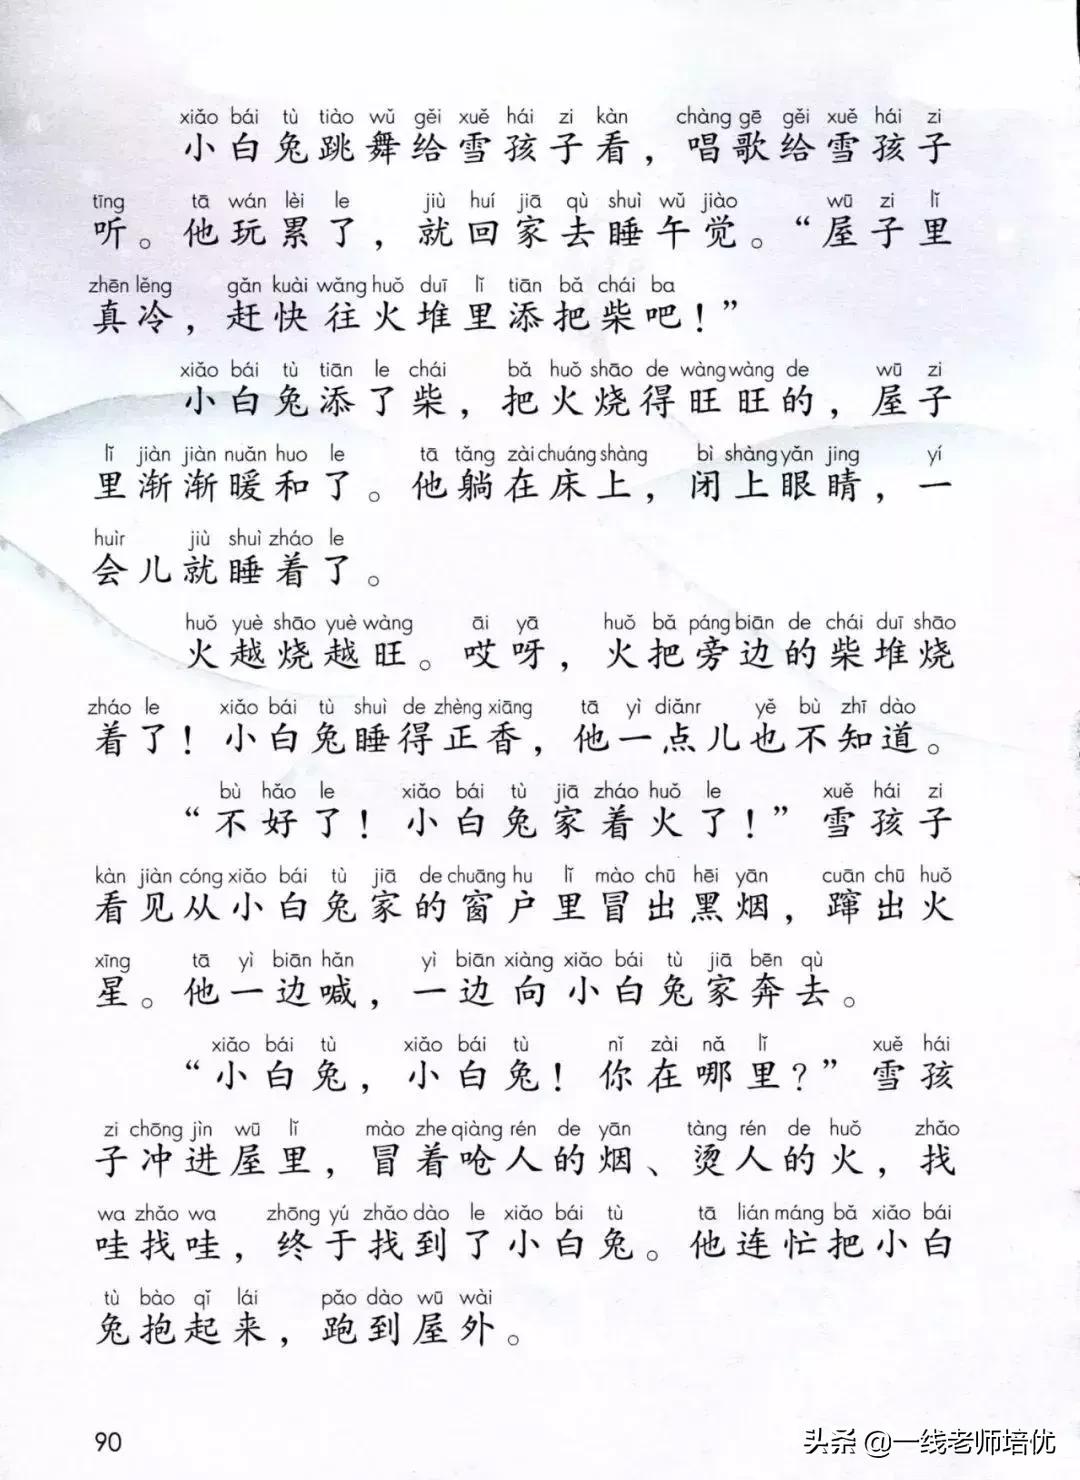 xiǎo bái tù tiào wǔ gěi xuě hái zi kàn chàng gē gěi xuě hái zi
小白兔跳舞给雪孩子看，唱歌给雪孩子
tīng tā wán lèi le jiù huí jiā qù shuì wǔ jiào wū zi lǐ
听。他玩累了，就回家去睡午觉。“屋子里
zhēn lěng gǎn kuài wǎng huǒ duī lǐ tiān bǎ chái ba
真冷，赶快往火堆里添把柴吧！”
xiǎo bái tù tiān le chái bǎ huǒ shāo de wàng wàng de wū zi
小白兔添了柴，把火烧得旺旺的，屋子
lǐ jiàn jiàn nuǎn huo le tā tǎng zài chuáng shàng bì shàng yǎn jing yí
里渐渐暖和了。他躺在床上，闭上眼睛，一
huìr jiù shuì zháo le
会儿就睡着了。
huǒ yuè shāo yuè wàng āi yā huǒ bǎ páng biān de chái duī shāo
火越烧越旺。哎呀，火把旁边的柴堆烧
zháo le xiǎo bái tù shuì de zhèng xiāng tā yì diǎnr yě bù zhī dào
着了！小白兔睡得正香，他一点儿也不知道。
bù hǎo le xiǎo bái tù jiā zháo huǒ le xuě hái zi
“不好了！小白兔家着火了！”雪孩子
kàn jiàn cóng xiǎo bái tù jiā de chuāng hu lǐ mào chū hēi yān cuān chū huǒ
看见从小白兔家的窗户里冒出黑烟，蹿出火
xīng tā yì biān hǎn yì biān xiàng xiǎo bái tù jiā bēn qù
星。他一边喊，一边向小白兔家奔去。
xiǎo bái tù xiǎo bái tù nǐ zài nǎ lǐ xuě hái
“小白兔，小白兔！你在哪里？”雪孩
zi chōng jìn wū lǐ mào zhe qiàng rén de yān tàng rén de huǒ zhǎo
子冲进屋里，冒着呛人的烟、烫人的火，找
wa zhǎo wa zhōng yú zhǎo dào le xiǎo bái tù tā lián máng bǎ xiǎo bái
哇找哇，终于找到了小白兔。他连忙把小白
tù bào qǐ lái pǎo dào wū wài
兔抱起来，跑到屋外。
90
头条 @一线老师培优